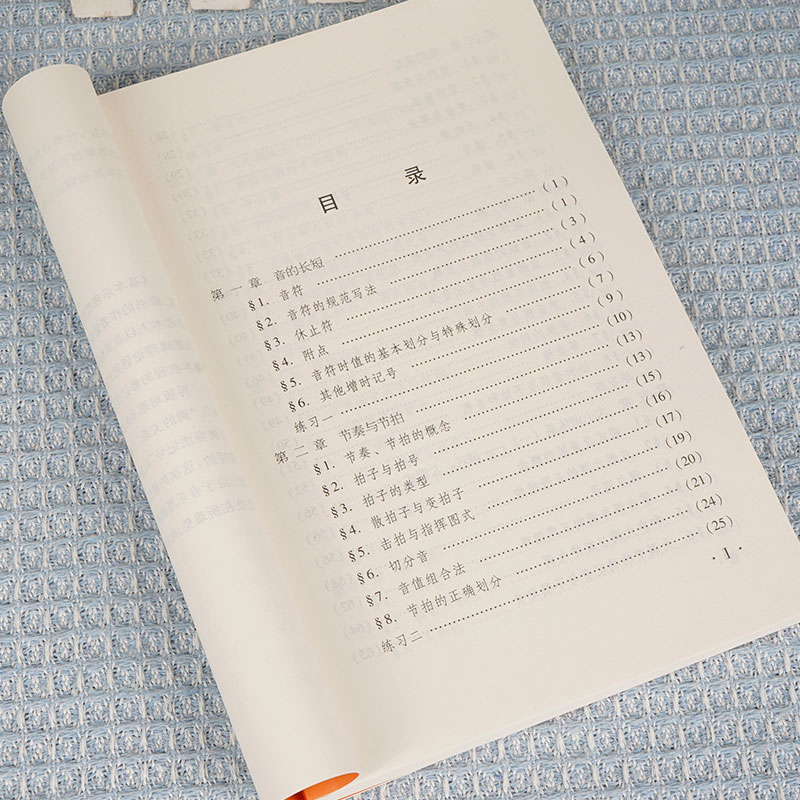 目 录
第一章 音的长短 ……………………(1)
§1. 音符 ……………………(1)
§2. 音符的规范写法 ……………………(3)
§3. 休止符 ……………………(4)
§4. 附点 ……………………(6)
§5. 音符时值的基本划分与特殊划分 ……………………(7)
§6. 其他增时记号 ……………………(9)
练习一 ……………………(10)
第二章 节奏与节拍 ……………………(13)
§1. 节奏、节拍的概念 ……………………(13)
§2. 拍子与拍号 ……………………(15)
§3. 拍子的类型 ……………………(16)
§4. 散拍子与变拍子 ……………………(17)
§5. 击拍与指挥图式 ……………………(19)
§6. 切分音 ……………………(20)
§7. 音值组合法 ……………………(21)
§8. 节拍的正确划分 ……………………(24)
练习二 ……………………(25)
· I ·